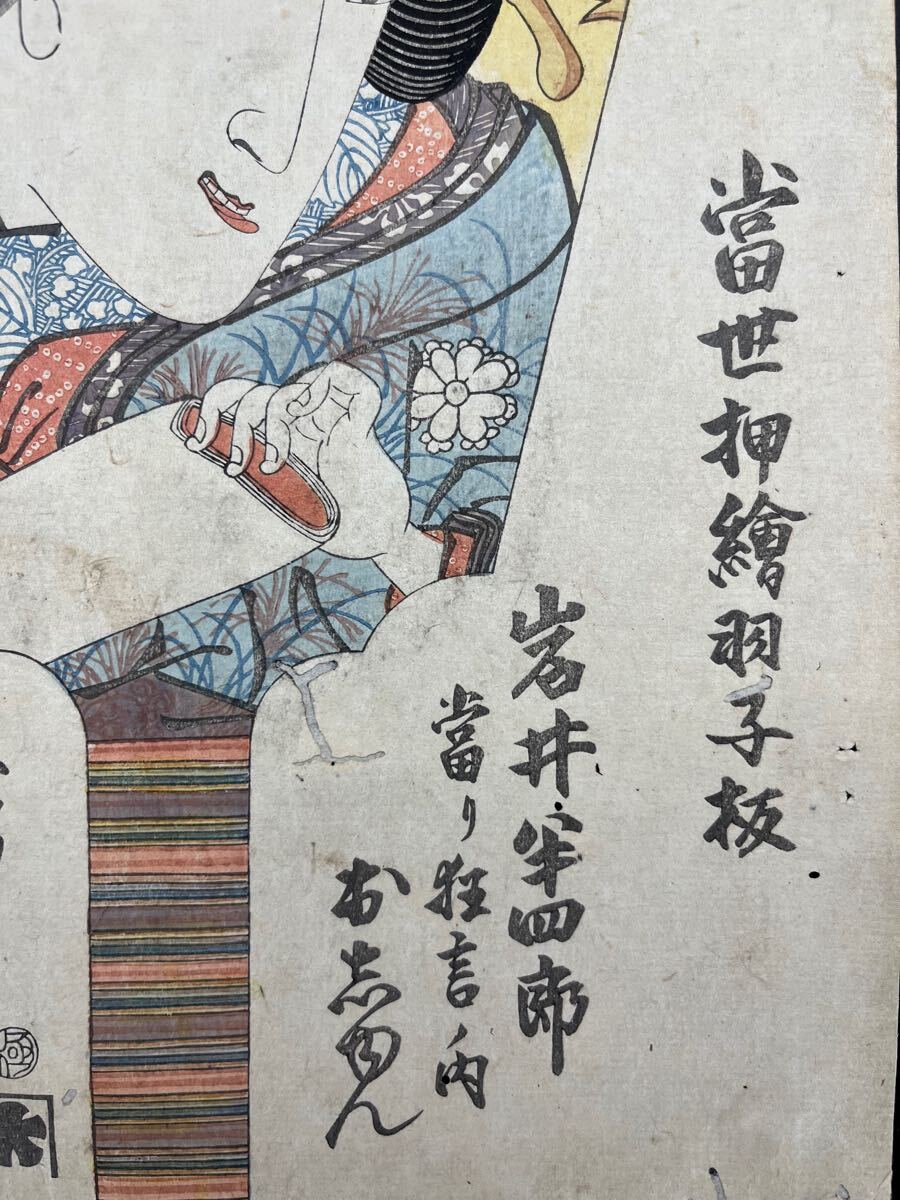 當世押繪羽子板
岩井半四郎
當り狂言ノ内